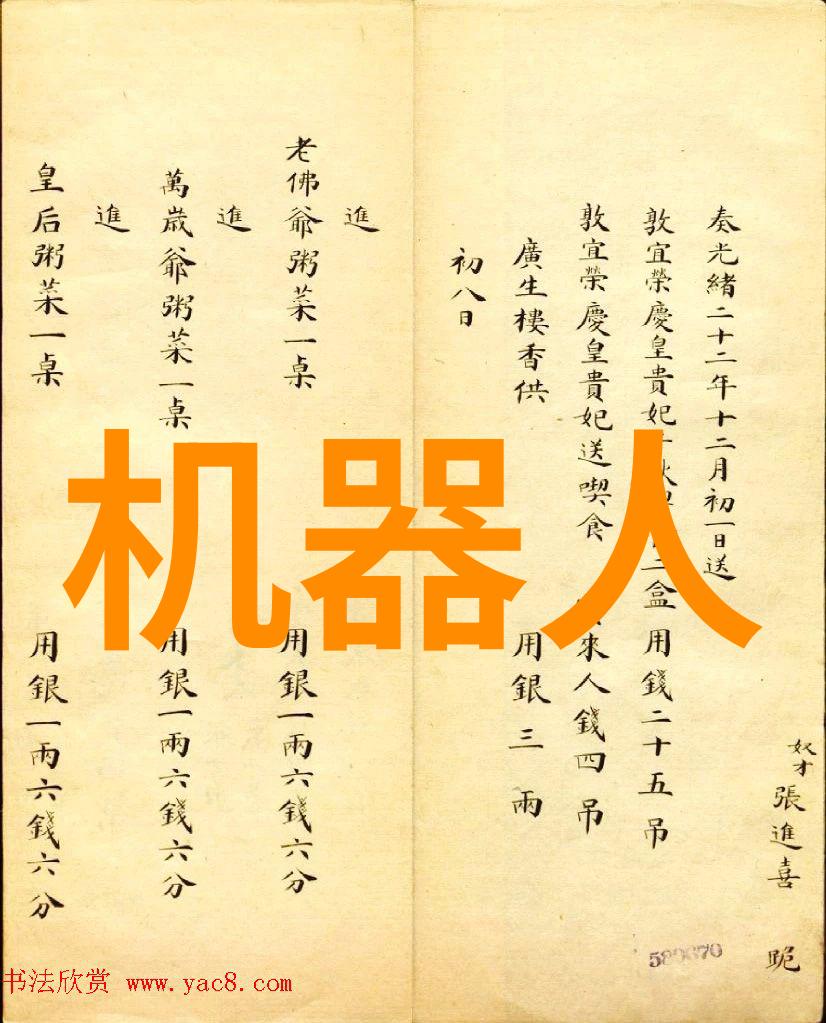 奴才張進喜 跪
奏光緒二十二年十二月初一日送
敦宜榮慶皇貴妃 二盒 用錢二十五吊
敦宜榮慶皇貴妃送喫食 來人錢四吊
廣生樓香供 用銀三兩
初八日
進
老佛爺粥菜一桌 用銀一兩六錢六分
進
萬歲爺粥菜一桌 用銀一兩六錢六分
進
皇后粥菜一桌 用銀一兩六錢六分
机器人
书法欣赏 www.yac8.com